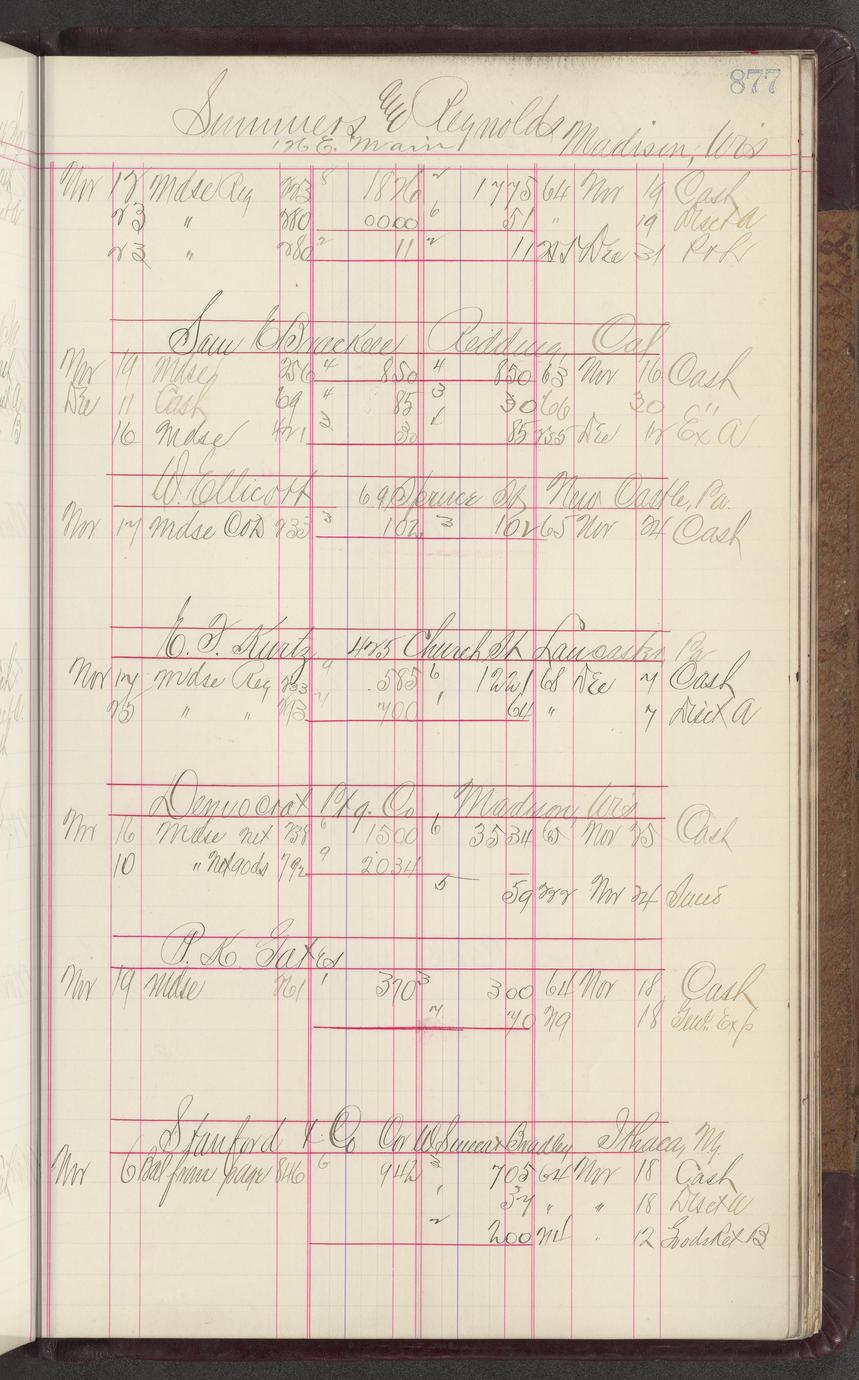 877
Summers & Reynolds Madison, Wis
126 E. Main
Nov 12 Mdse Reg 223 8 1826 2 1775 64 Nov 19 Cash
23 " 280 0000 6 51 " 19 Disct A
23 " 280 2 11 2 11 Dec 31 P&L
Sam E Bracken Redding, Cal
Nov 19 Mdse 256 4 850 4 850 63 Nov 16 Cash
Dec 11 Cash 69 4 85 3 30 66 30 "
16 Mdse 421 3 30 1 85 235 Dec 12 Ex A
W. Ellicott 69 Spruce St New Castle, Pa.
Nov 17 Mdse COD 233 3 102 3 102 65 Nov 24 Cash
E. F. Kurtz 425 Church St Lancaster Pa
Nov 17 Mdse Reg 233 9 585 6 1221 68 Dec 7 Cash
25 " " 293 4 700 1 64 " 7 Disct A
Democrat Ptg. Co Madison, Wis
Nov 16 Mdse net 238 6 1500 6 3534 65 Nov 25 Cash
10 " Net gods 792 9 2034
5 59 222 Nov 24 Sund
P. K. Gates
Nov 19 Mdse 261 1 370 3 300 64 Nov 18 Cash
7 70 79 18 Genl. Exp
Stanford & Co Cor W Seneca & Bradley Ithaca, Ny
Nov 6 Bal from page 846 6 942 3 705 64 Nov 18 Cash
1 37 " " 18 Disct A
2 200 " 12 Goods Ret B